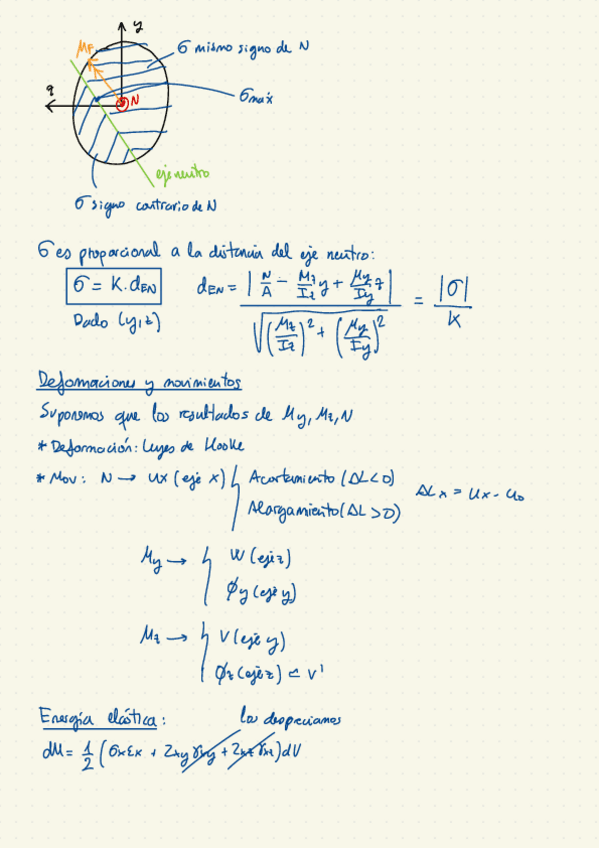 y
σ mismo signo de N
MF
z
N
σmáx
eje neutro
σ signo contrario de N
σ es proporcional a la distancia del eje neutro:
σ = K·dEN
dEN = |N/A - Mz/Iz y + My/Iy z| / √((Mz/Iz)² + (My/Iy)²) = |σ|/K
Dado (y,z)
Deformaciones y movimientos
Suponemos que los resultados de My, Mz, N
* Deformación: Leyes de Hooke
* Mov: N → ux (eje x) { Acortamiento (ΔL<0)
Alargamiento (ΔL>0)
ΔLx = ux - u0
My → { W (eje z)
φy (eje y)
Mz → { V (eje y)
φz (eje z) = V'
Energía elástica:
los despreciamos
dU = 1/2 (σx εx + 2xy γxy + 2xz γxz) dV